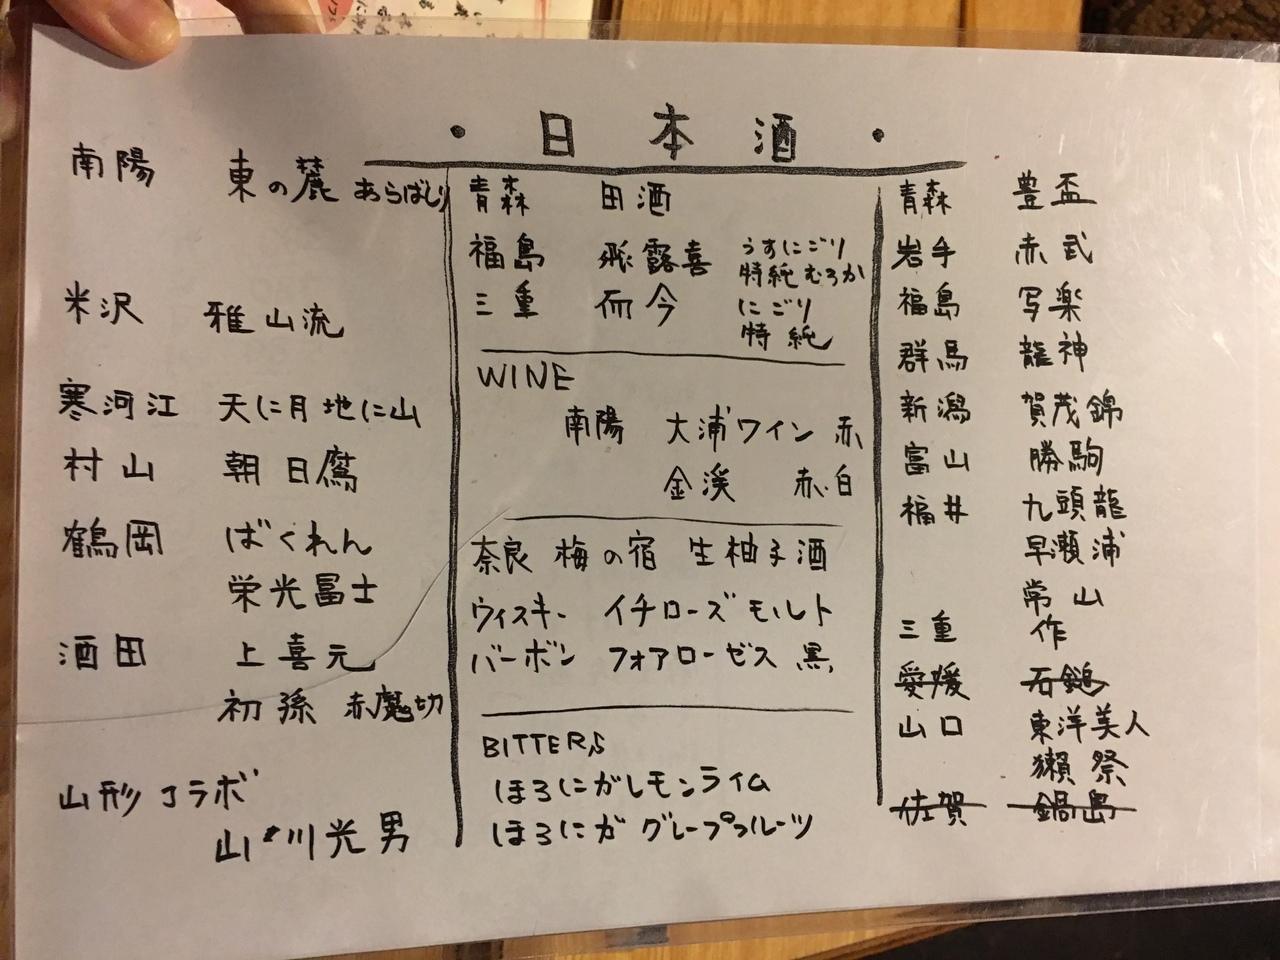 ・日本酒・
南陽 東の麓 あらばしり
米沢 雅山流
寒河江 天に月地に山
村山 朝日鷹
鶴岡 ばくれん
栄光冨士
酒田 上喜元
初孫 赤魔切
山形コラボ
山川光男
青森 田酒
福島 飛露喜 うすにごり
特純むろか
三重 而今 にごり
特純
WINE
南陽 大浦ワイン 赤
金渓 赤、白
奈良 梅の宿 生柚子酒
ウィスキー イチローズモルト
バーボン フォアローゼス 黒
BITTERS
ほろにがレモンライム
ほろにがグレープフルーツ
青森 豊盃
岩手 赤武
福島 写楽
群馬 龍神
新潟 賀茂錦
富山 勝駒
福井 九頭龍
早瀬浦
常山
三重 作
愛媛 石鎚
山口 東洋美人
獺祭
佐賀 鍋島